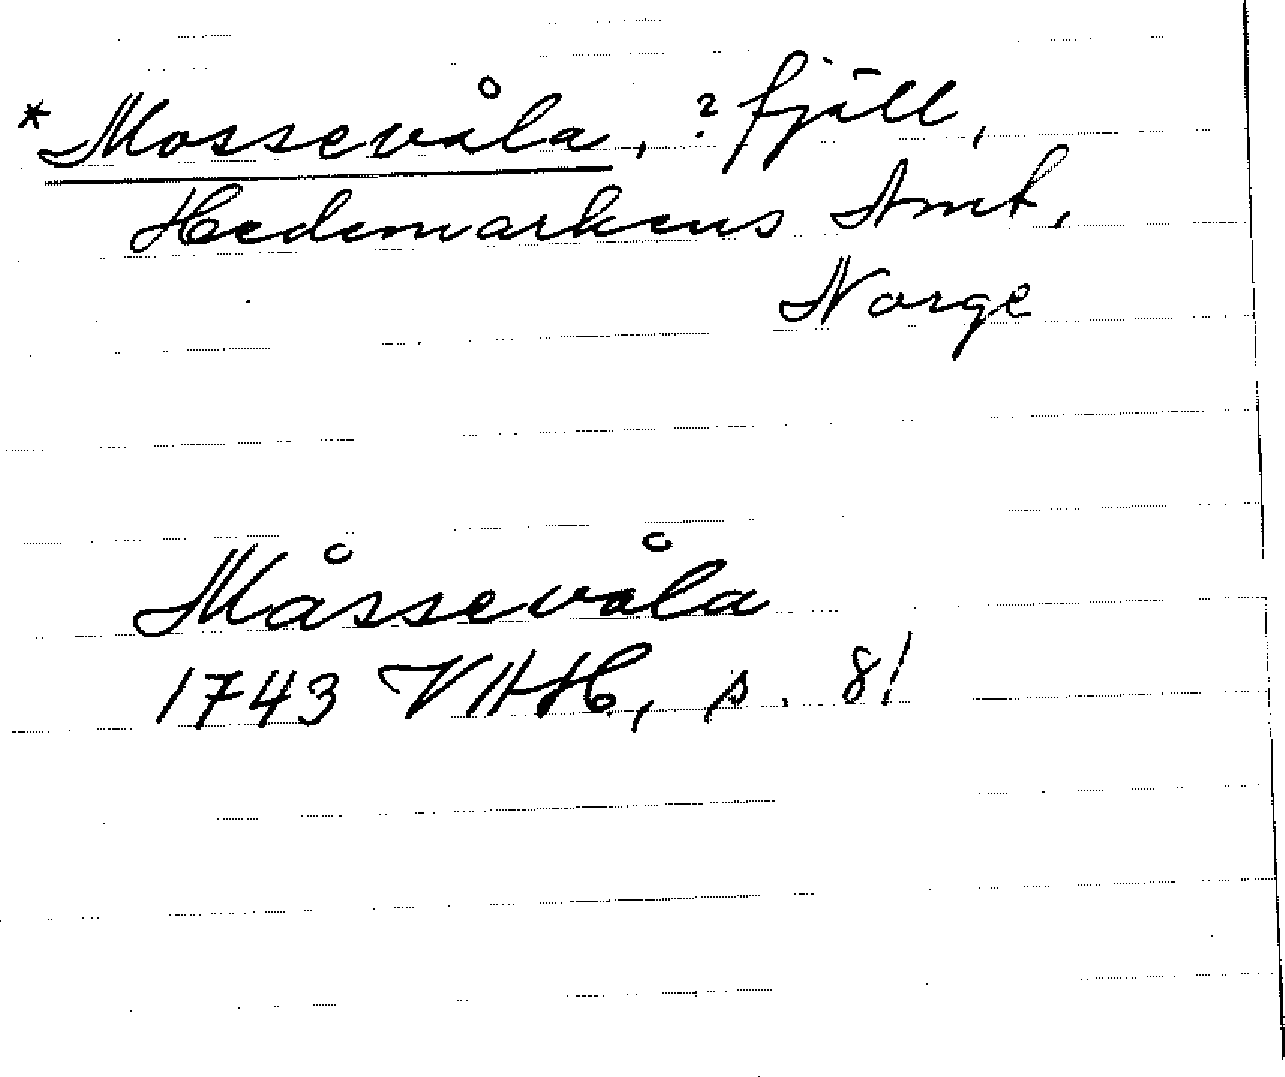 *Mossevåla, ? fjäll,
Hedemarkens Amt,
Norge
Måssevåla
1743 VHH, s. 81